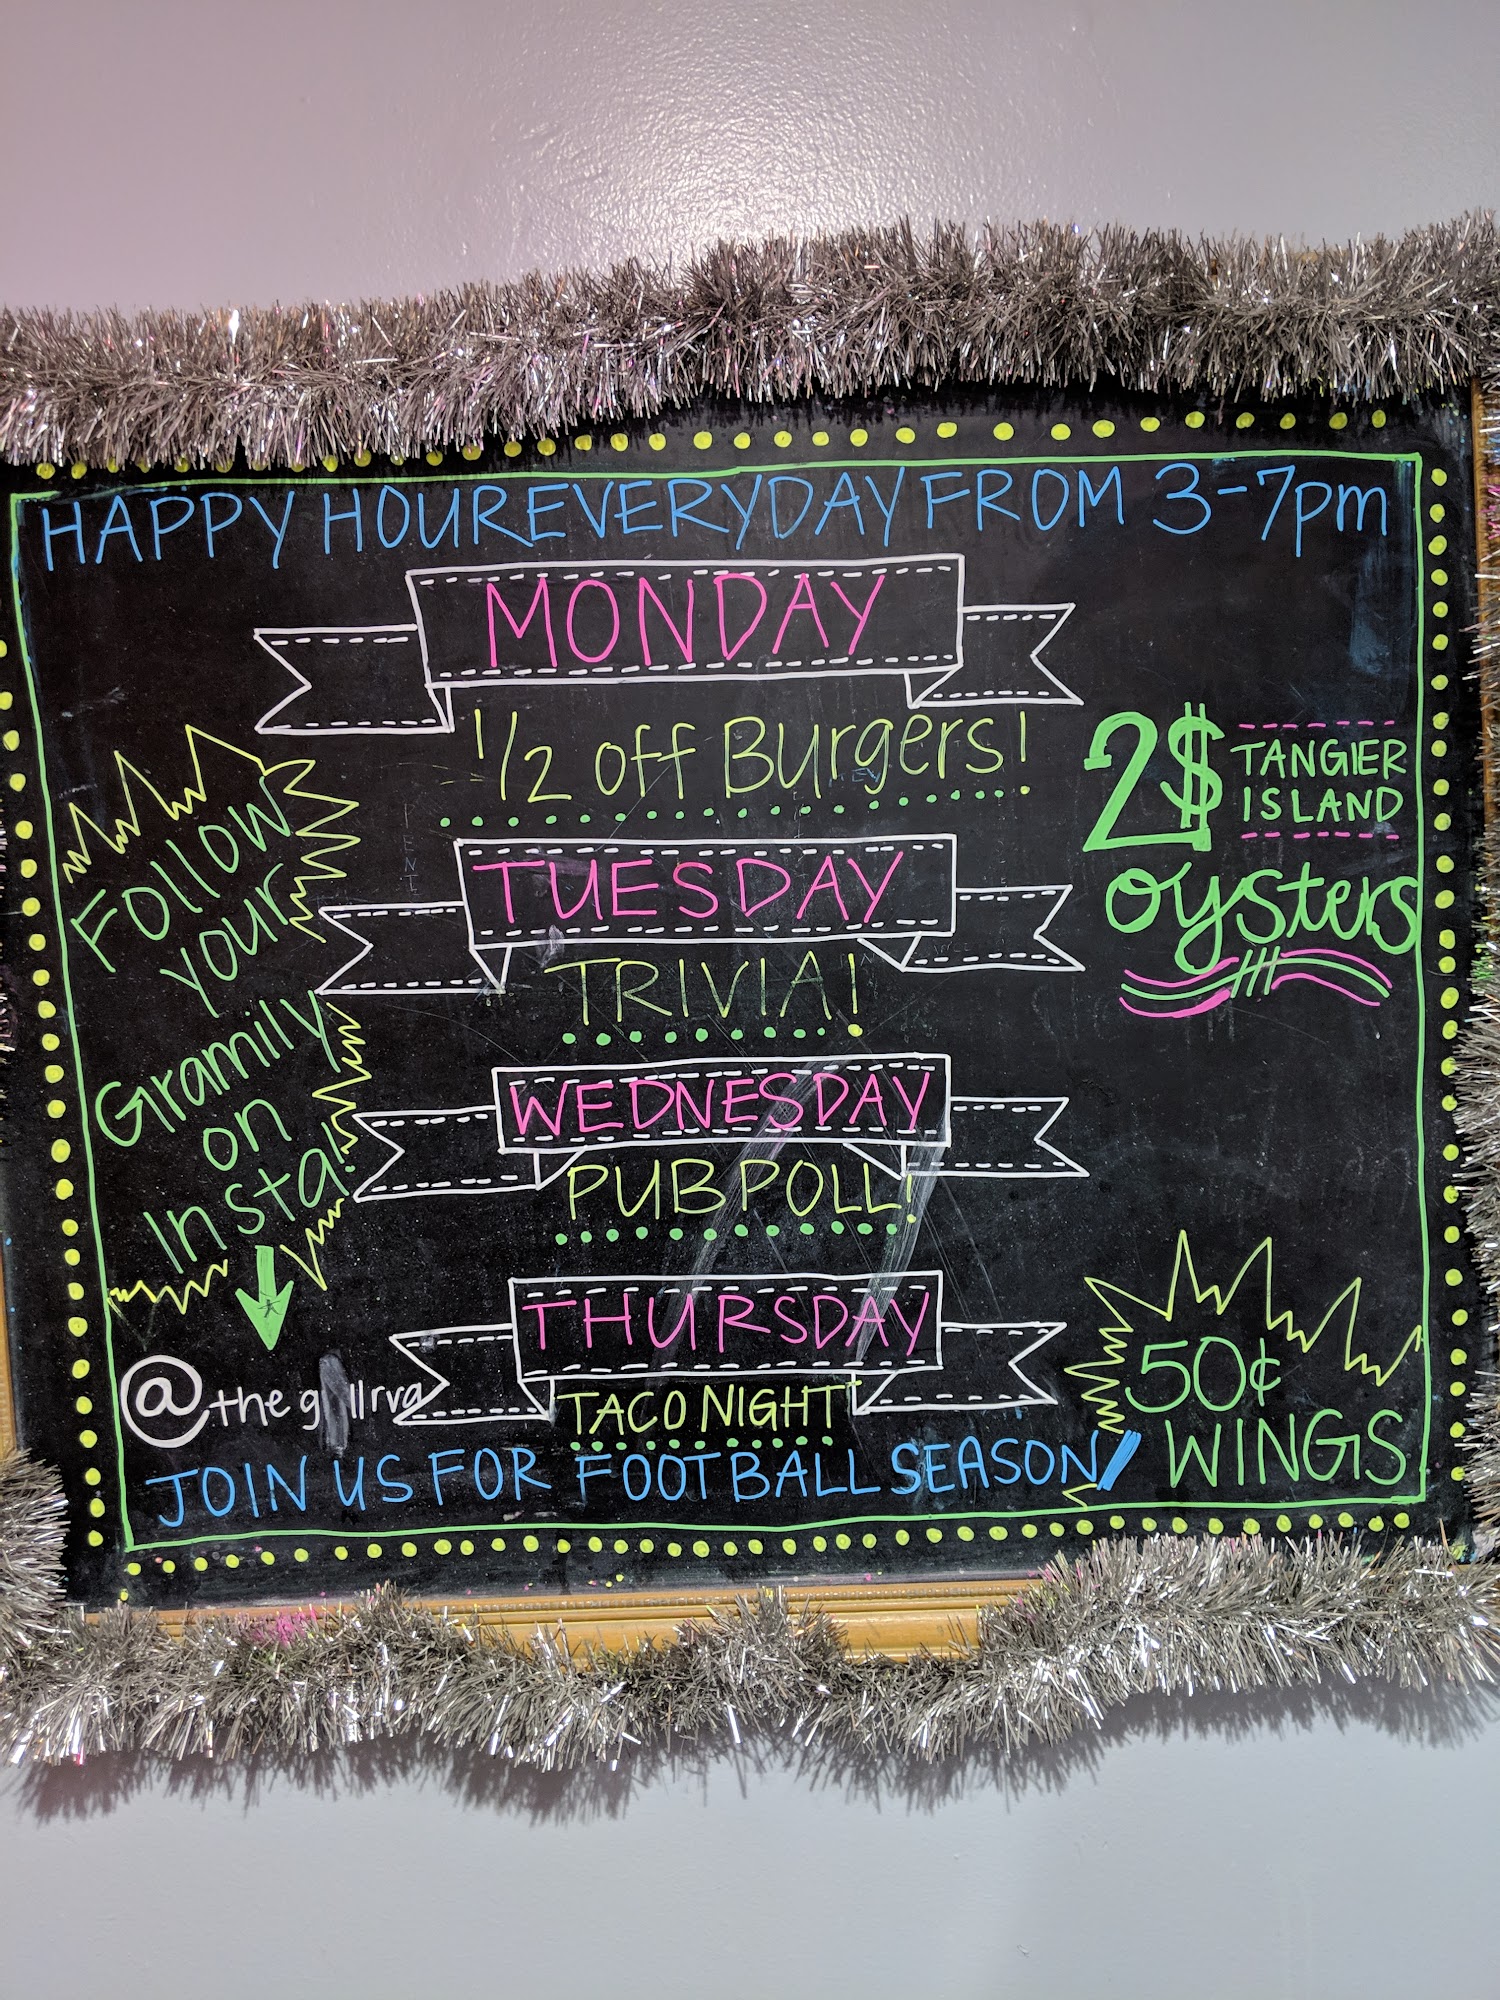 HAPPY HOUR EVERYDAY FROM 3-7pm
MONDAY
1/2 off Burgers!
TUESDAY
TRIVIA!
WEDNESDAY
PUB POLL!
THURSDAY
TACO NIGHT
JOIN US FOR FOOTBALL SEASON
Follow
your
Gramily
on
Insta!
2$ TANGIER
ISLAND
oysters
50¢
WINGS